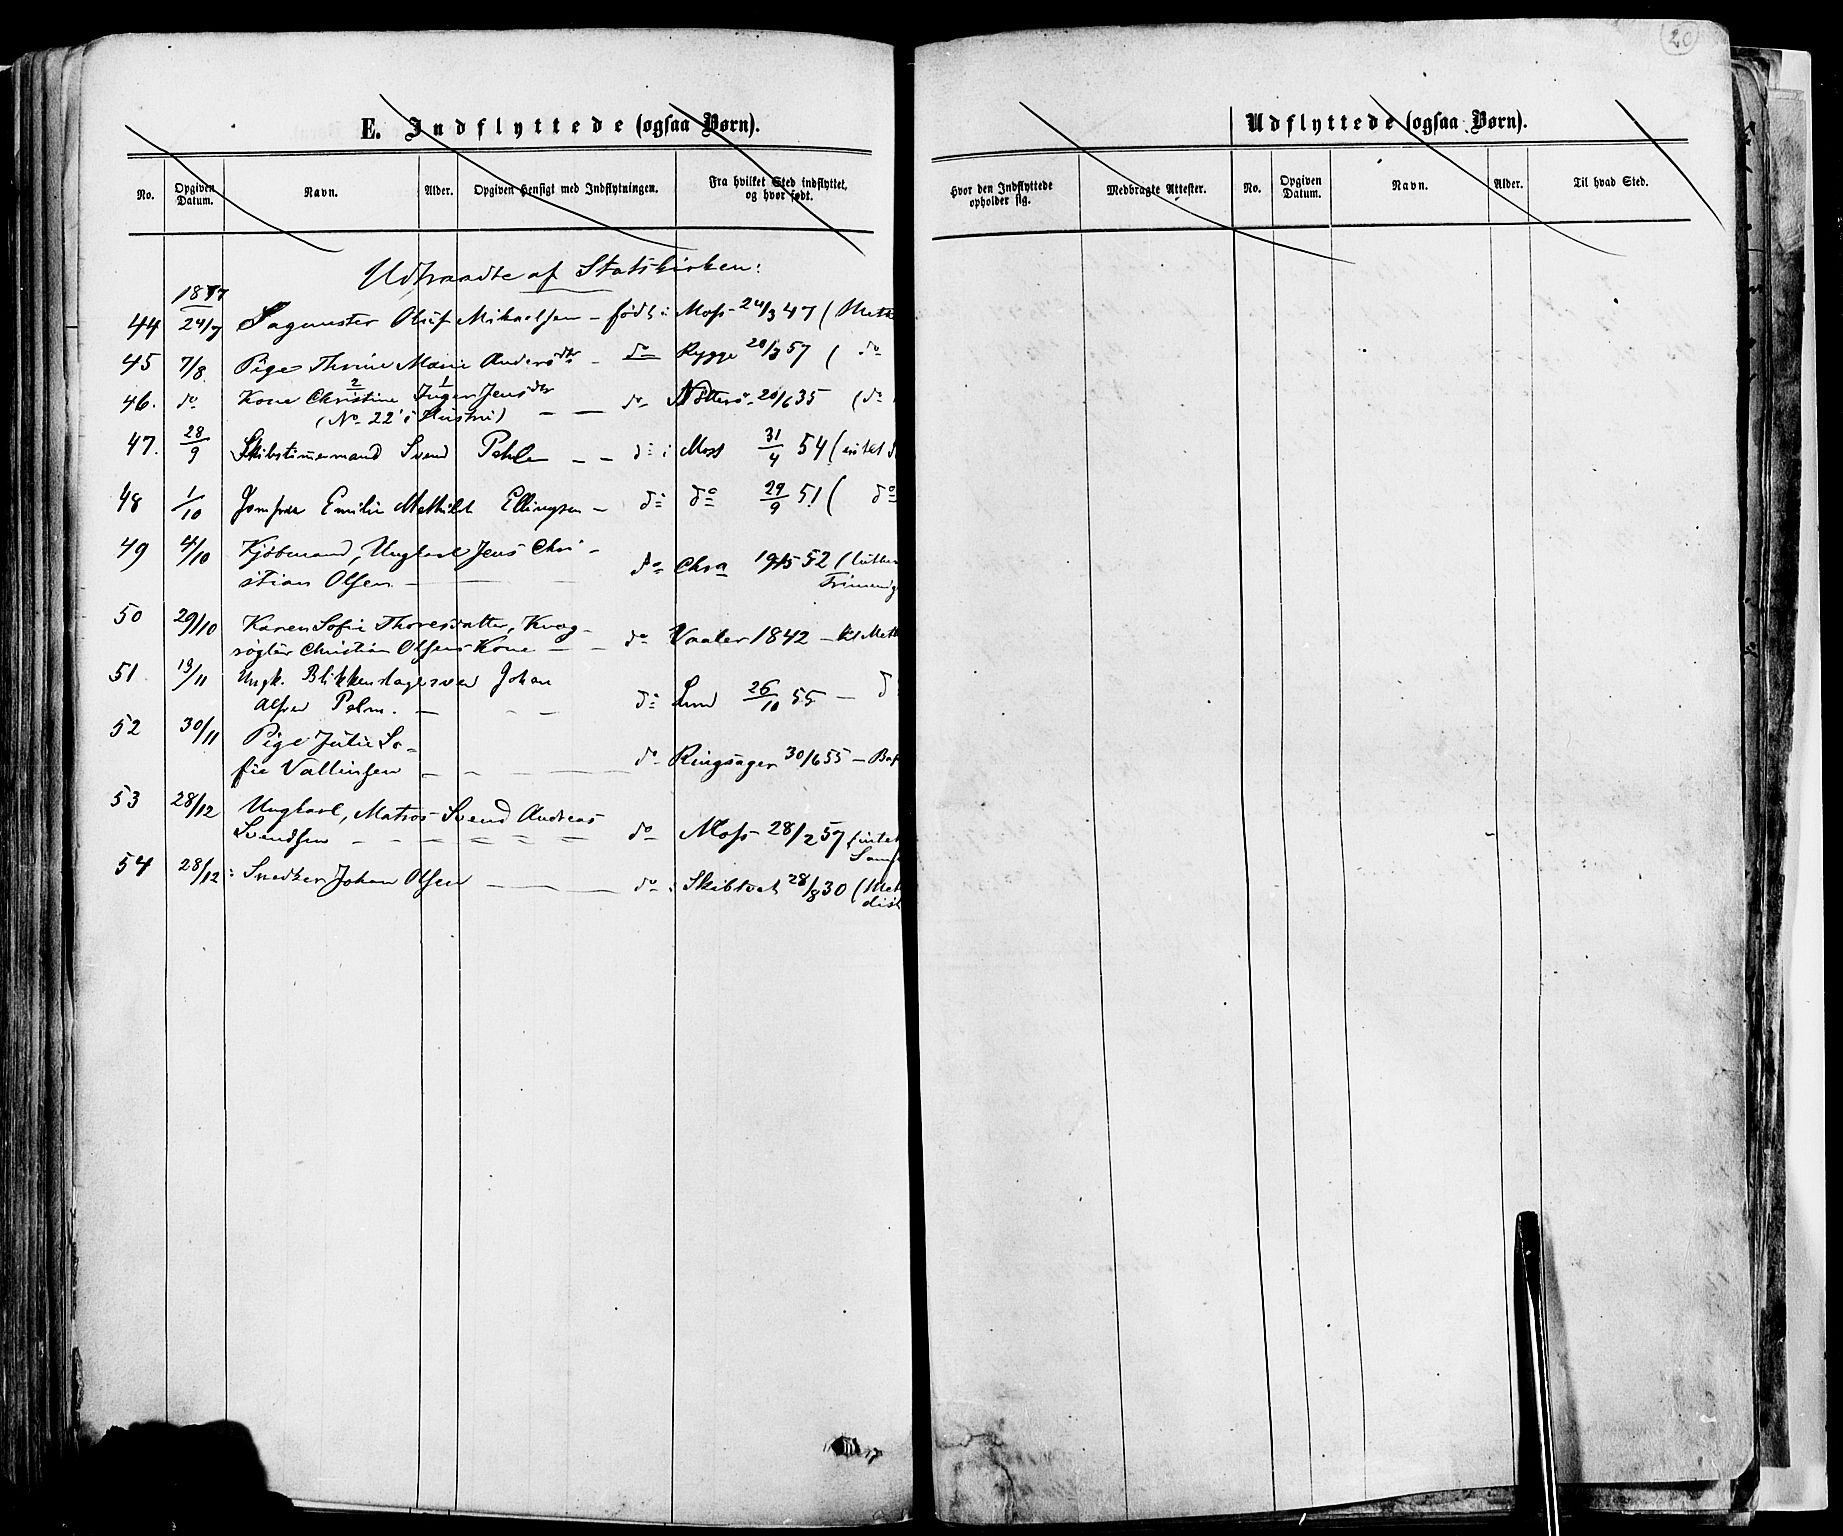 20
E. Indflyttede (ogsaa Børn).
No. Opgiven Datum. Navn. Alder. Opgiven Hensigt med Indflytningen. Fra hvilket Sted indflyttet, og hvor født.
Udtraadte af Statskirken:
1877
44 24/7 Sagmester Oluf Mikaelsen - født i Moss 24/3 47 (Meth
45 7/8 Pige Thrine Marie Andersdtr - do Rygge 20/3 57 ( do
46. do Kone Christine 2 Inger 1 Jensdtr
(No 22 i ) - - do Nötterö 20/6 35 (do
47. 28/9 Skibstimmermand Svend Pehle - - do i Moss 31/4 54 (intet
48 1/10 Jomfru Emilie Mathilde Ellingsen - do do 29/9 51 ( do
49 4/10 Kjøbmand, Ungkarl Jens Chri-
stian Olsen - do Chra 19/5 52 (luther
Frimenig
50 29/10 Karen Sofie Thoresdatter, Kvæg-
røgter Christian Olsens Kone - - do Vaaler 1842 - Meth
51 13/11 Ungk. Blikkenslagersvend Johan
Alfred Palm. - - - do Lund 26/10 55 - d
52 30/11 Pige Julie So-
fie Vallinsen - - - do Ringsager 30/6 55 - Bap
53 28/12 Ungkarl, Matros Svend Andreas
Svendsen - - - - - do Moss 28/2 57 (intet
Samf
54 28/12 : Snedker Johan Olsen - - - do : Skibtvet 28/8 30 (Met
dist
Udflyttede (ogsaa Børn).
Hvor den Indflyttede opholder sig. Medbragte Attester. No. Opgiven Datum. Navn. Alder. Til hvad Sted.